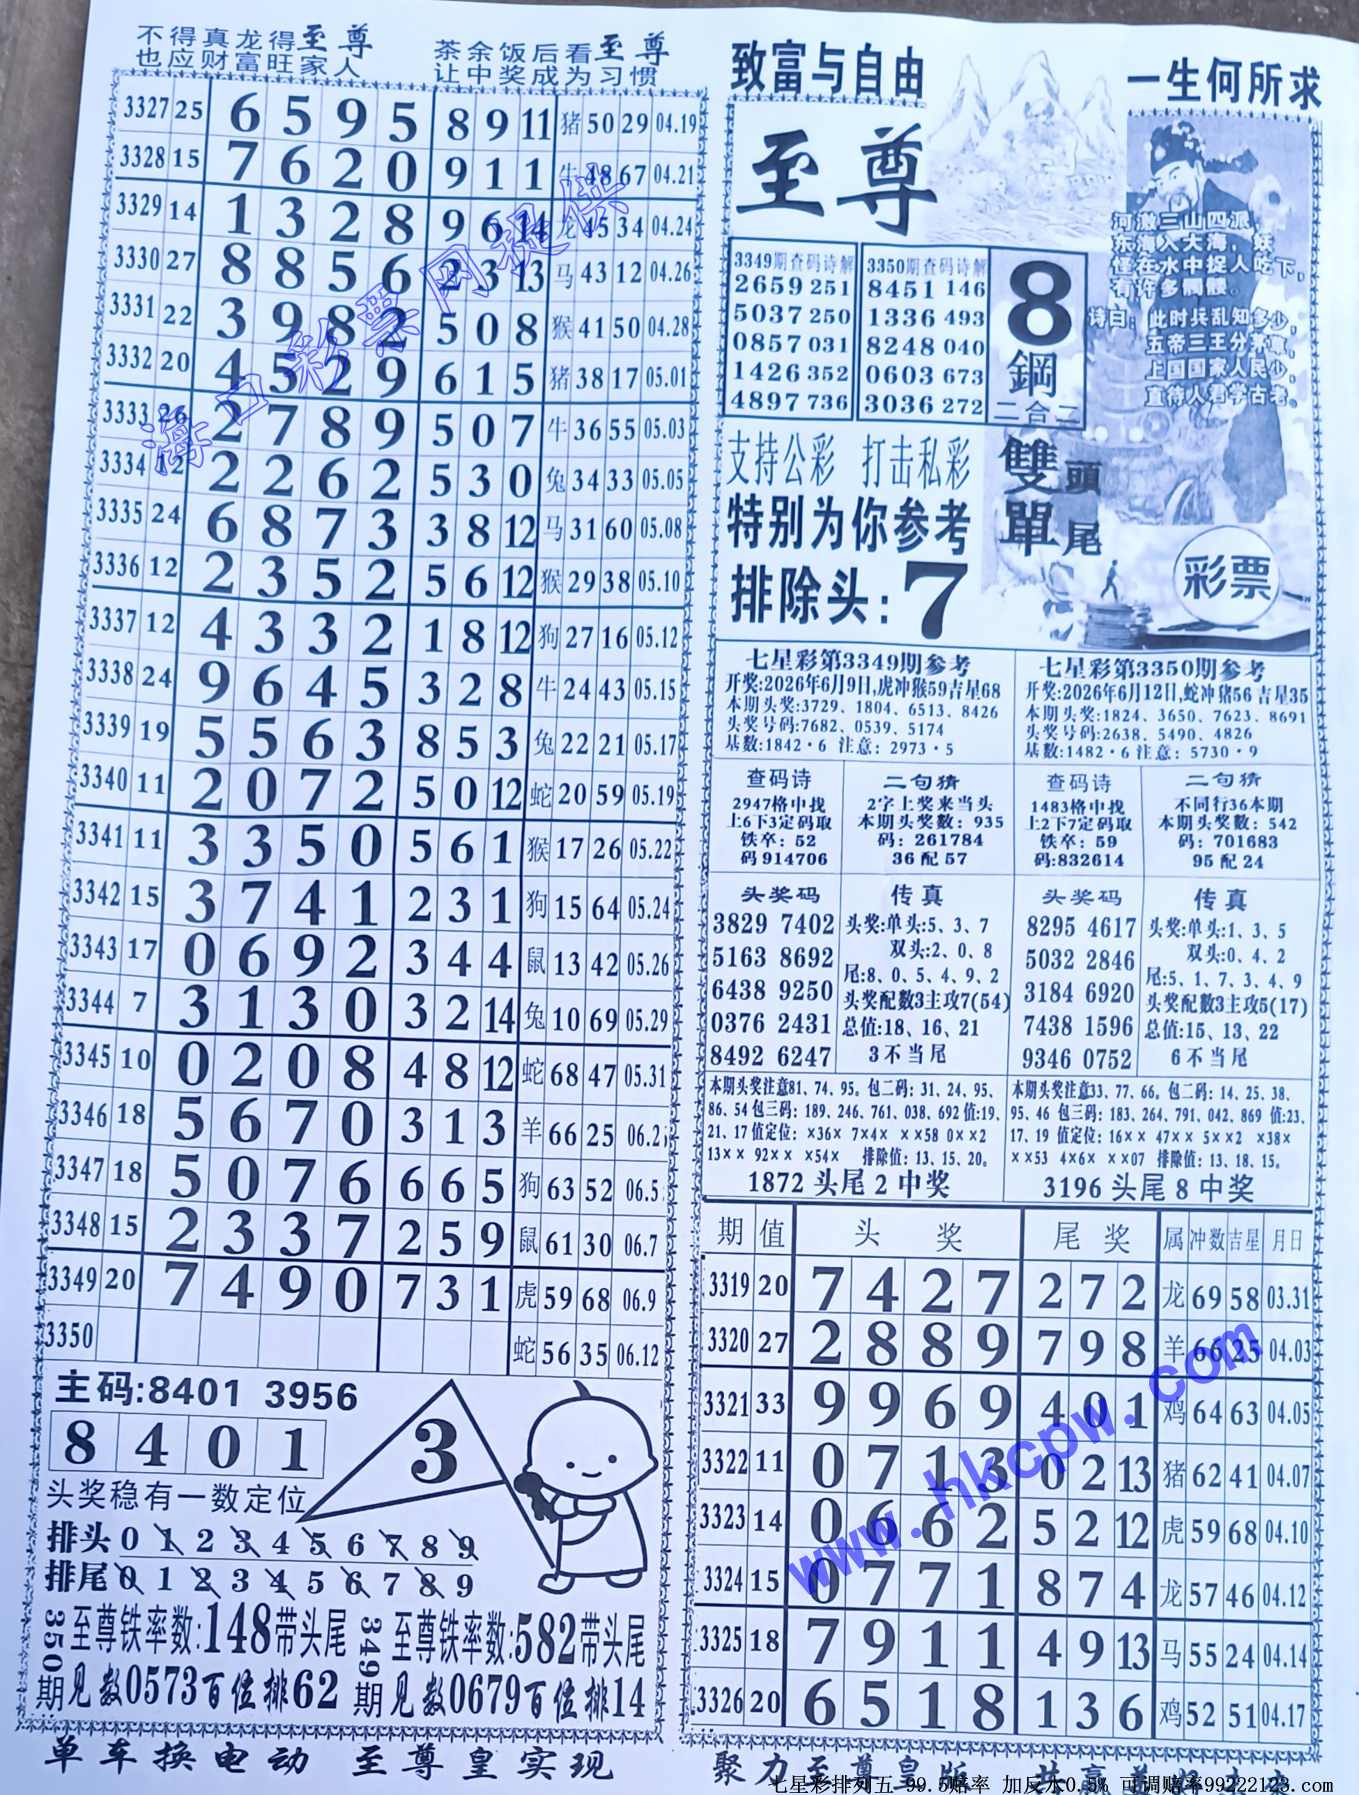 不得真龙得至尊
也应财富旺家人
茶余饭后看至尊
让中奖成为习惯
3327 25 6 5 9 5 8 9 11 猪 50 29 04.19
3328 15 7 6 2 0 9 1 1 牛 48 67 04.21
3329 14 1 3 2 8 9 6 14 龙 45 34 04.24
3330 27 8 8 5 6 2 3 13 马 43 12 04.26
3331 22 3 9 8 2 5 0 8 猴 41 50 04.28
3332 20 4 5 2 9 6 1 5 猪 38 17 05.01
3333 26 2 7 8 9 5 0 7 牛 36 55 05.03
3334 12 2 2 6 2 5 3 0 兔 34 33 05.05
3335 24 6 8 7 3 3 8 12 马 31 60 05.08
3336 12 2 3 5 2 5 6 12 猴 29 38 05.10
3337 12 4 3 3 2 1 8 12 狗 27 16 05.12
3338 24 9 6 4 5 3 2 8 牛 24 43 05.15
3339 19 5 5 6 3 8 5 3 兔 22 21 05.17
3340 11 2 0 7 2 5 0 12 蛇 20 59 05.19
3341 11 3 3 5 0 5 6 1 猴 17 26 05.22
3342 15 3 7 4 1 2 3 1 狗 15 64 05.24
3343 17 0 6 9 2 3 4 4 鼠 13 42 05.26
3344 7 3 1 3 0 3 2 14 兔 10 69 05.29
3345 10 0 2 0 8 4 8 12 蛇 68 47 05.31
3346 18 5 6 7 0 3 1 3 羊 66 25 06.2
3347 18 5 0 7 6 6 6 5 狗 63 52 06.5
3348 15 2 3 3 7 2 5 9 鼠 61 30 06.7
3349 20 7 4 9 0 7 3 1 虎 59 68 06.9
3350 蛇 56 35 06.12
海口彩票网提供
主码:8401 3956
8 4 0 1
3
头奖稳有一数定位
排头 0 1 2 3 4 5 6 7 8 9
排尾 0 1 2 3 4 5 6 7 8 9
350期
至尊铁率数:148带头尾
见数0573百位排62
349期
至尊铁率数:582带头尾
见数0679百位排14
单车换电动 至尊皇实现
致富与自由
一生何所求
至尊
3349期查码诗解
2659 251
5037 250
0857 031
1426 352
4897 736
3350期查码诗解
8451 146
1336 493
8248 040
0603 673
3036 272
8
鋼
二合二
河激三山四派,
东海入大海,妖
怪在水中捉人吃下,
有许多髑髅。
诗曰:此时兵乱知多少,
五帝三王分茅草,
上国国家人民少,
直待人君学古老。
支持公彩 打击私彩
雙頭
單尾
特别为你参考
排除头:7
彩票
七星彩第3349期参考
开奖:2026年6月9日,虎冲猴59吉星68
本期头奖:3729、1804、6513、8426
头奖号码:7682、0539、5174
基数:1842·6 注意:2973·5
七星彩第3350期参考
开奖:2026年6月12日,蛇冲猪56 吉星35
本期头奖:1824、3650、7623、8691
头奖号码:2638、5490、4826
基数:1482·6 注意:5730·9
查码诗
2947格中找
上6下3定码取
铁卒:52
码914706
二句猜
2字上奖来当头
本期头奖数:935
码:261784
36配57
查码诗
1483格中找
上2下7定码取
铁卒:59
码:832614
二句猜
不同行36本期
本期头奖数:542
码:701683
95配24
头奖码
3829 7402
5163 8692
6438 9250
0376 2431
8492 6247
传真
头奖:单头:5、3、7
双头:2、0、8
尾:8、0、5、4、9、2
头奖配数3主攻7(54)
总值:18、16、21
3不当尾
头奖码
8295 4617
5032 2846
3184 6920
7438 1596
9346 0752
传真
头奖:单头:1、3、5
双头:0、4、2
尾:5、1、7、3、4、9
头奖配数3主攻5(17)
总值:15、13、22
6不当尾
本期头奖注意81、74、95。包二码:31、24、95、
86、54包三码:189、246、761、038、692值:19、
21、17值定位:×36× 7×4× ××58 0××2
13×× 92×× ×54× 排除值:13、15、20。
1872头尾2中奖
本期头奖注意33、77、66。包二码:14、25、38、
95、46包三码:183、264、791、042、869 值:23、
17、19值定位:16×× 47×× 5××2 ×38×
××53 4×6× ××07 排除值:13、18、15。
3196头尾8中奖
期 值 头奖 尾奖 属 冲数 吉星 月日
3319 20 7 4 2 7 2 7 2 龙 69 58 03.31
3320 27 2 8 8 9 7 9 8 羊 66 25 04.03
3321 33 9 9 6 9 4 0 1 鸡 64 63 04.05
3322 11 0 7 1 3 0 2 13 猪 62 41 04.07
3323 14 0 6 6 2 5 2 12 虎 59 68 04.10
3324 15 0 7 7 1 8 7 4 龙 57 46 04.12
3325 18 7 9 1 1 4 9 13 马 55 24 04.14
3326 20 6 5 1 8 1 3 6 鸡 52 51 04.17
www.hkcpw.com
聚力至尊皇版
七星彩排列五 99.5赔率 加反水0.5% 可调赔率99222123.com